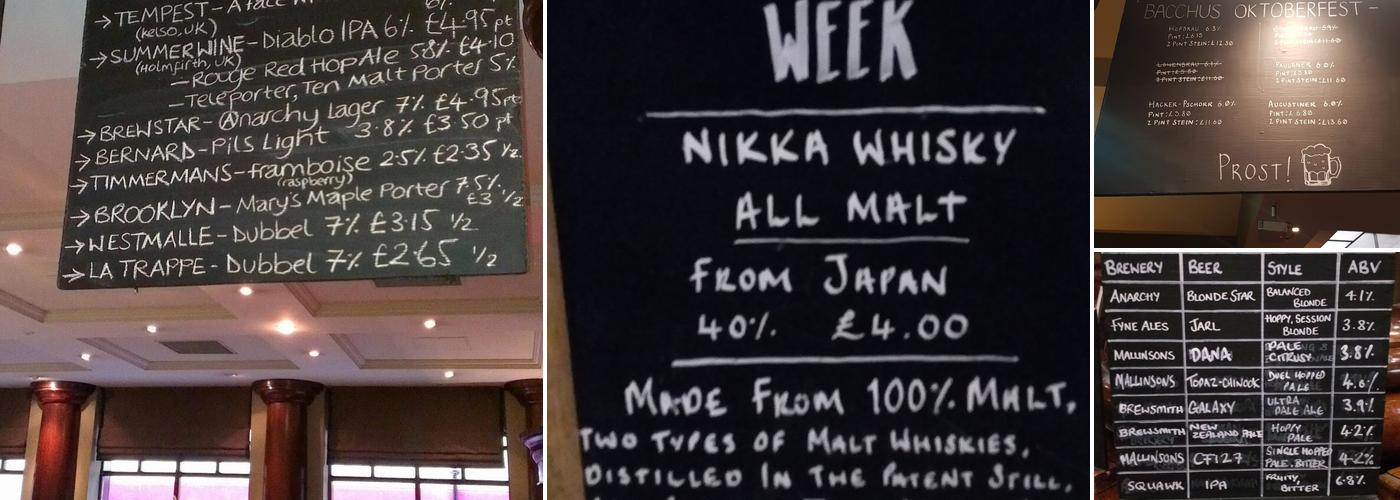 →TEMPEST-
(KELSO, UK)
→SUMMERWINE- Diablo IPA 6% £4.95pt
(Holmfirth, UK)
-Rouge Red Hop Ale 5.8% £4.10
-Teleporter, Ten Malt Porter 5%
→BREWSTAR- Anarchy Lager 7% £4.95pt
→BERNARD-Pils Light 3.8% £3.50 pt
→TIMMERMANS-framboise 2.5% £2.35 1/2
(raspberry)
→BROOKLYN- Mary's Maple Porter 7.5%
£3 1/2
→WESTMALLE- Dubbel 7% £3.15 1/2
→LA TRAPPE- Dubbel 7% £2.65 1/2
WEEK
NIKKA WHISKY
ALL MALT
FROM JAPAN
40% £4.00
MADE FROM 100% MALT,
TWO TYPES OF MALT WHISKIES,
DISTILLED IN THE PATENT STILL,
BACCHUS OKTOBERFEST-
HOFBRAU 6.3%
PINT:£6.15
2 PINT STEIN:£12.30
LOWENBRAU 6.1%
PINT:£5.80
2 PINT STEIN:£11.60
PAULANER 6.0%
PINT:£5.80
2 PINT STEIN:£11.60
HACKER-PSCHORR 6.0%
PINT:£5.80
2 PINT STEIN:£11.60
AUGUSTINER 6.0%
PINT:£6.80
2 PINT STEIN:£13.60
PROST!
BREWERY BEER STYLE ABV
ANARCHY BLONDE STAR BALANCED BLONDE 4.1%
FYNE ALES JARL HOPPY, SESSION BLONDE 3.8%
MALLINSONS DANA PALE CITRUSY 3.8%
MALLINSONS TOPAZ-CHINOOK DUEL HOPPED PALE 4.6%
BREWSMITH GALAXY ULTRA PALE ALE 3.9%
BREWSMITH NEW ZEALAND PALE HOPPY PALE 4.2%
MALLINSONS CF127 SINGLE HOPPED PALE.BITTER 4.2%
SQUAWK IPA FRUITY, BITTER 6.8%